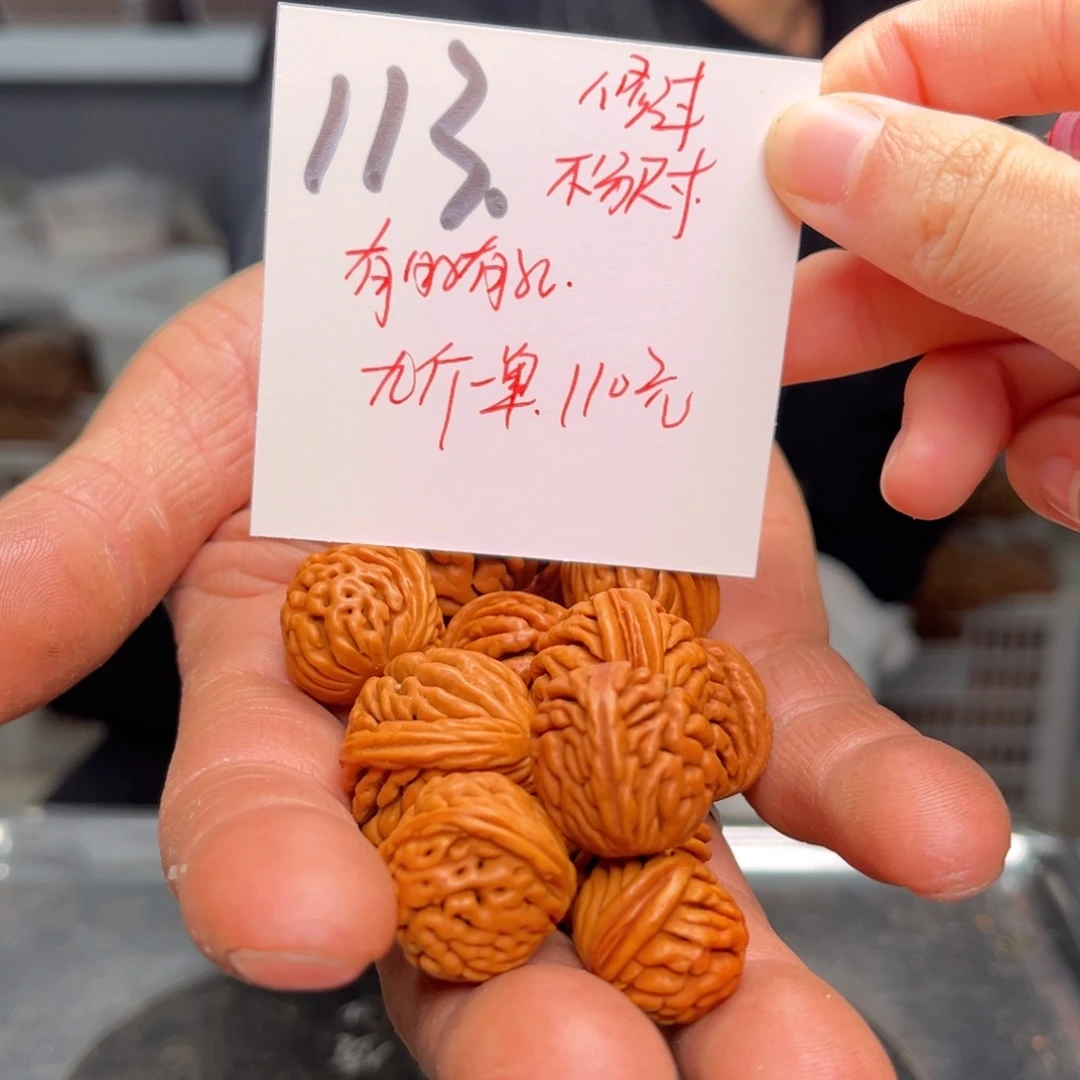 113.
修过
不分尺寸.
有的有孔.
九个一单.110元